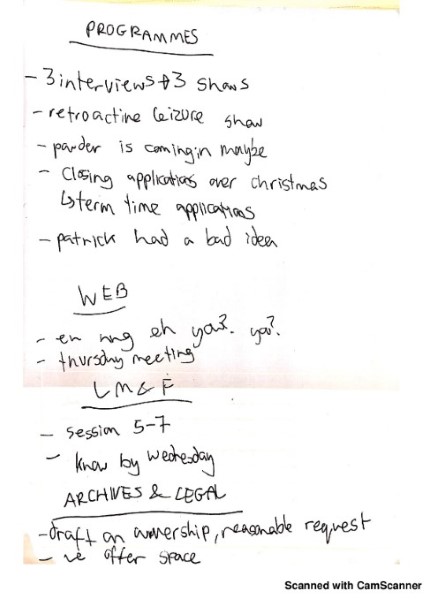 PROGRAMMES
- 3 interviews + 3 shows
- retroactive seizure show
- pander is coming in maybe
- Closing applications over christmas
↳ term time applications
- patrick had a bad idea
WEB
- en nng eh ya?. ya?.
- thursday meeting
LM&F
- session 5-7
- know by Wednesday
ARCHIVES & LEGAL
- draft an ownership, reasonable request
- we offer space
Scanned with CamScanner